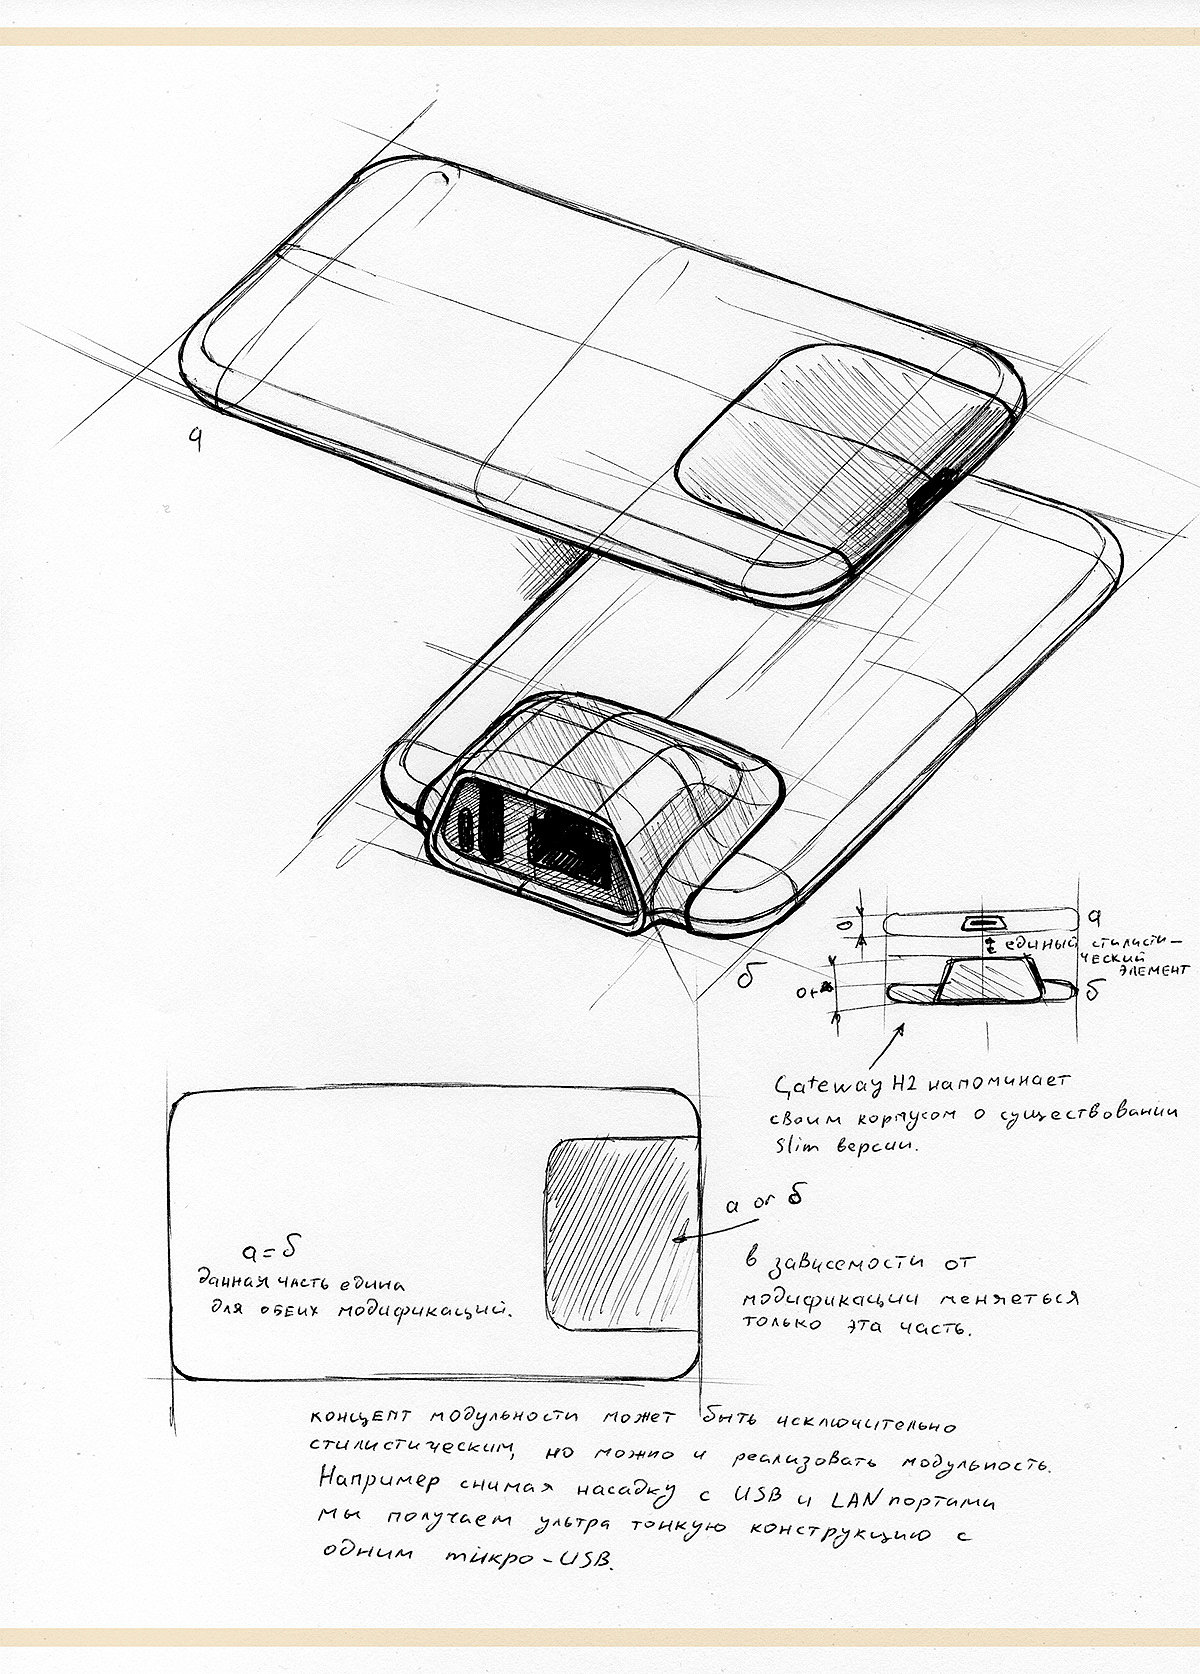 а
б
а
единый стилисти-
ческий
элемент
б
Gateway H2 напоминает
своим корпусом о существовании
Slim версии.
а or б
в зависемости от
модификации меняеться
только эта часть.
а = б
данная часть едина
для обеих модификаций.
концепт модульности может быть исключительно
стилистическим, но можно и реализовать модульность.
Например снимая насадку с USB и LAN портами
мы получаем ультра тонкую конструкцию с
одним микро-USB.